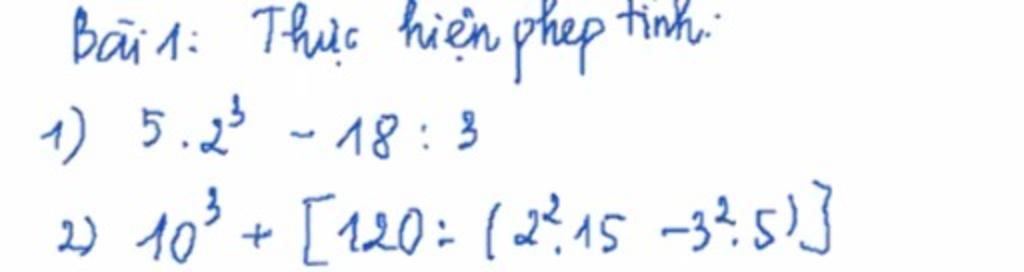 Bài 1: Thực hiện phép tính:
1) 5 . 2³ - 18 : 3
2) 10³ + [120 : (2² . 15 - 3² . 5)]